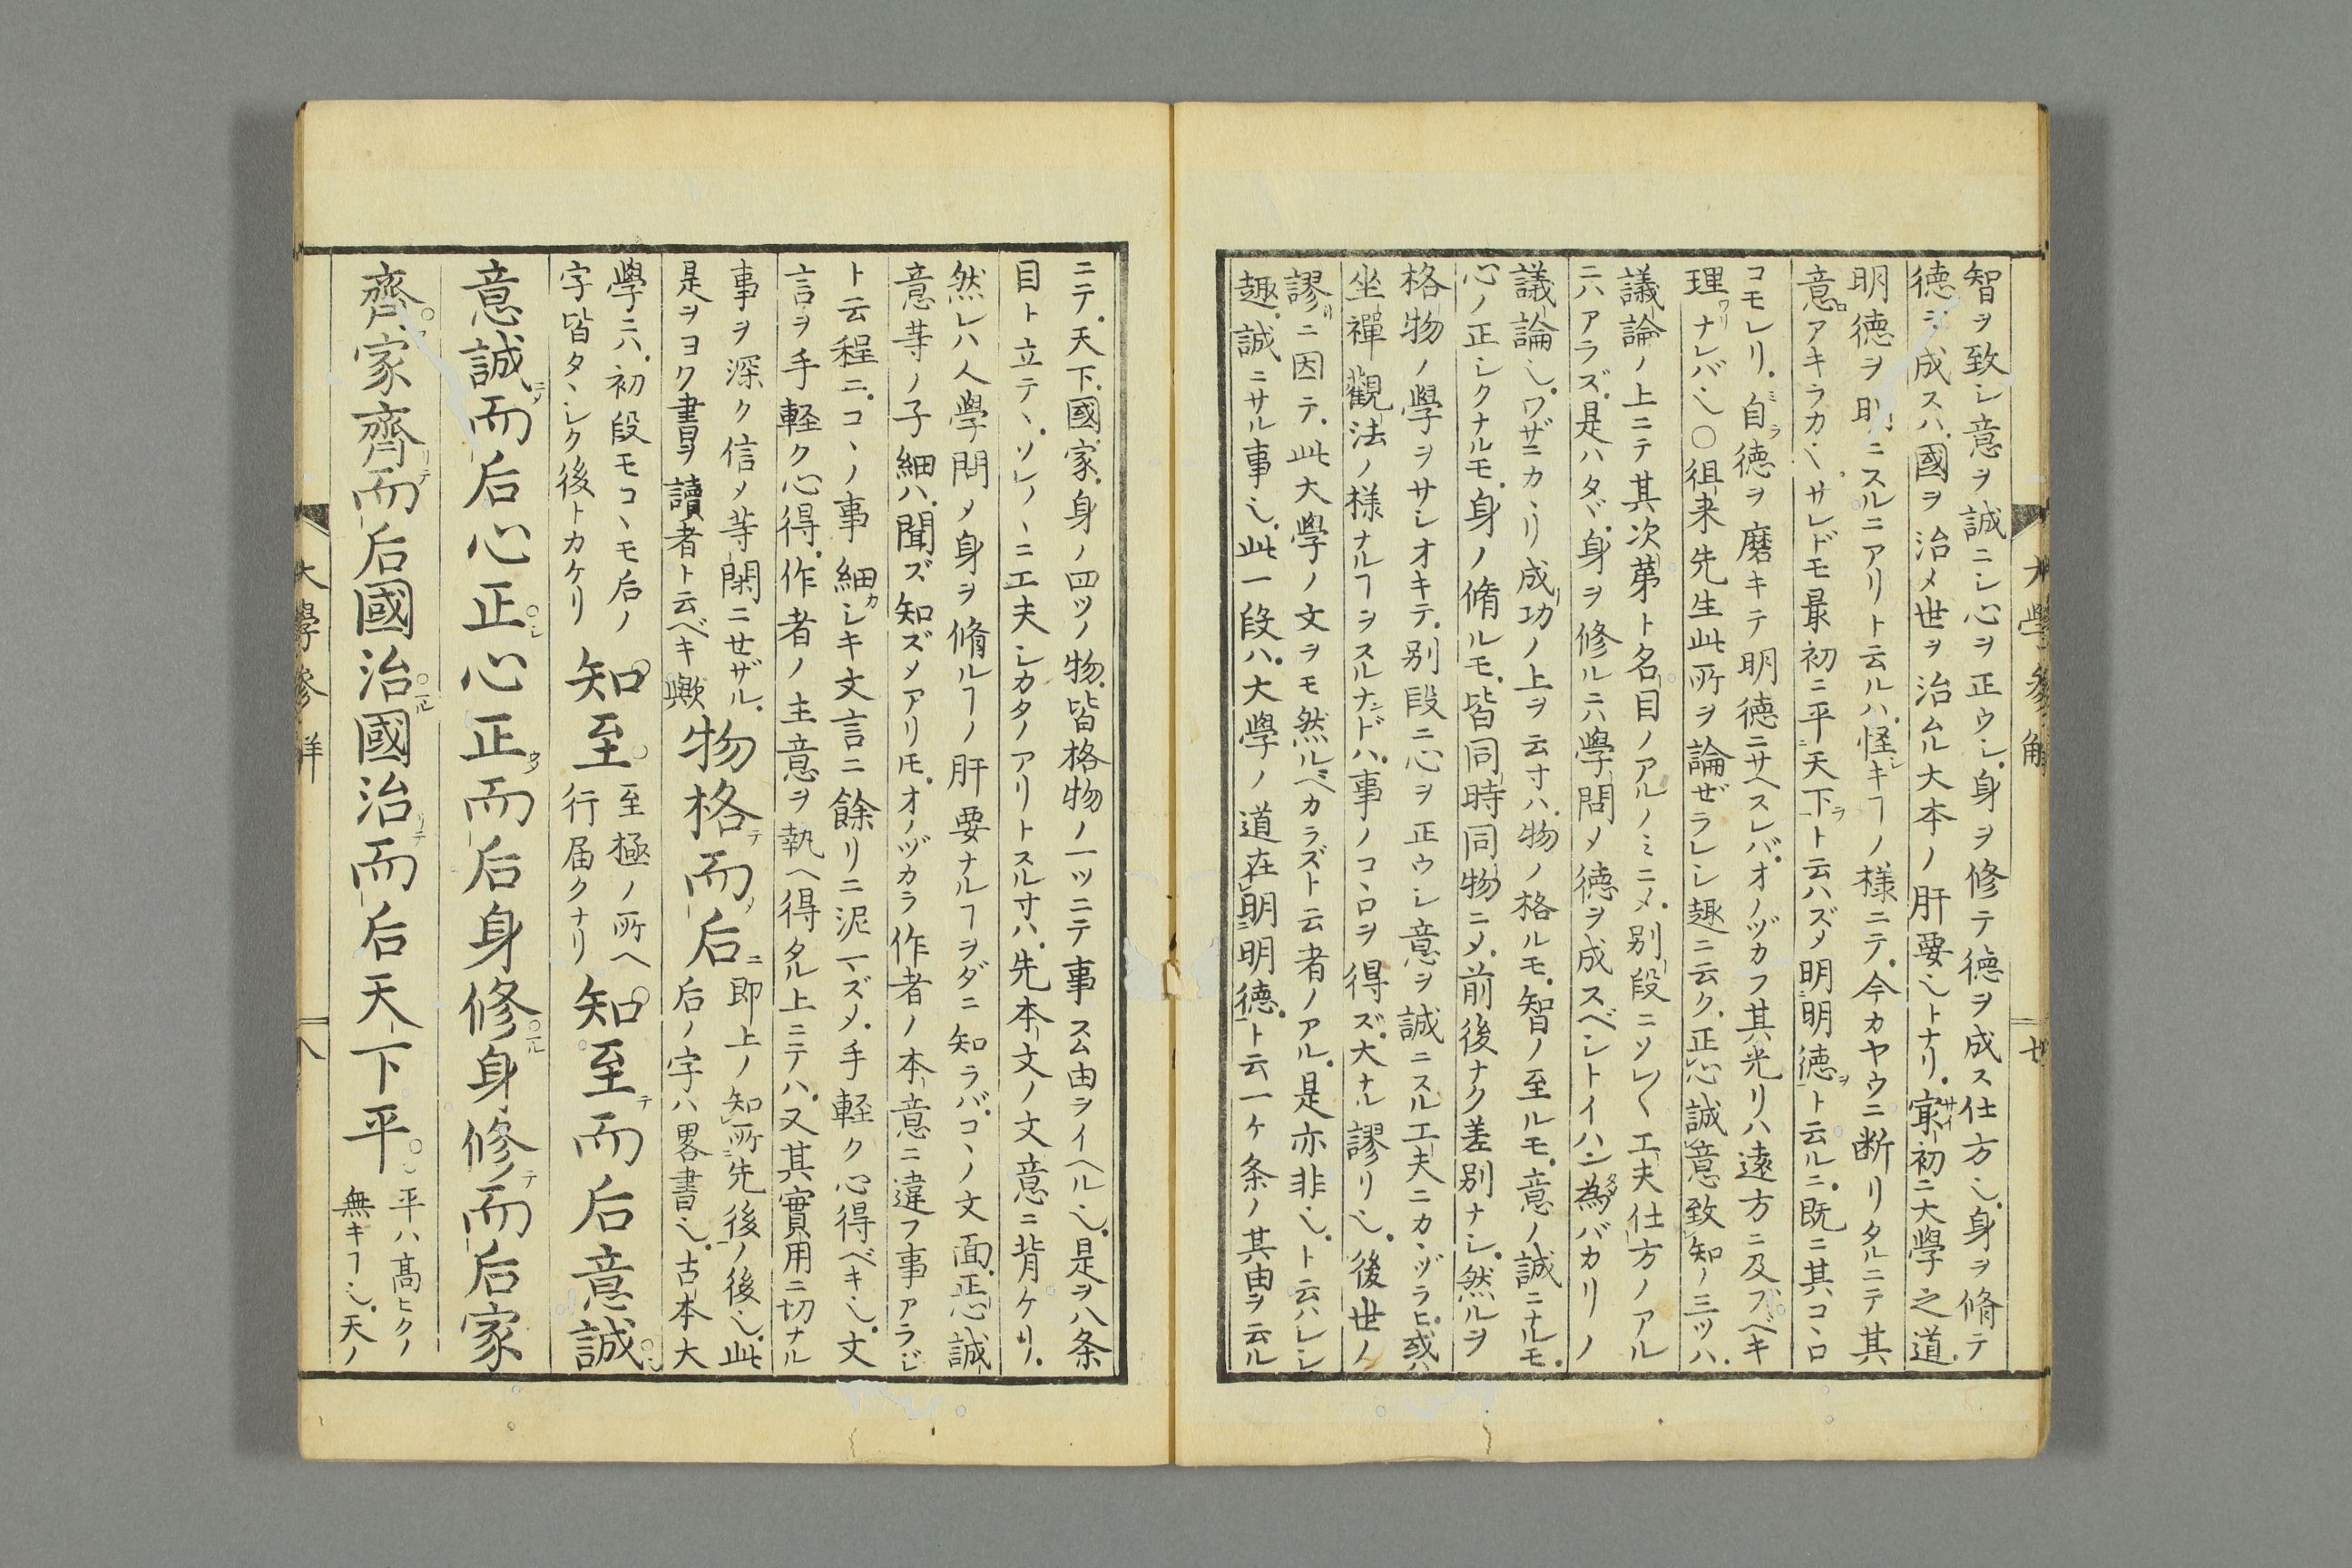 智ヲ致シ意ヲ誠ニシ心ヲ正ウシ身ヲ修テ徳ヲ成ス仕方也身ヲ脩テ
徳ヲ成スハ國ヲ治メ世ヲ治ムル大本ノ肝要也トナリ冣初ニ大學之道
明徳ヲ明ニスルニアリト云ルハ怪キヿノ様ニテ今カヤウニ断リタルニテ其
意アキラカ也サレドモ最初ニ平天下ト云ハズメ明明徳ト云ルニ既ニ其コヽロ
コモレリ自徳ヲ磨キテ明徳ニサヘスレバオノヅカラ其光リハ遠方ニ及ブベキ
理ナレバ也〇徂来先生此所ヲ論ぜラレシ趣ニ云ク正心誠意致知ノ三ツハ
議論ノ上ニテ其次第ト名目ノアルノミニメ別段ニソレ〱工夫仕方ノアル
ニハアラズ是ハタヾ身ヲ修ルニハ學問メ徳ヲ成スベシトイハン為バカリノ
議論也ワザニカヽリ成功ノ上ヲ云寸ハ物ノ格ルモ智ノ至ルモ意ノ誠ニナルモ
心ノ正シクナルモ身ノ脩ルモ皆同時同物ニメ前後ナク差別ナシ然ルヲ
格物ノ學ヲサシオキテ別段ニ心ヲ正ウシ意ヲ誠ニスル工夫ニカヽヅラヒ或ハ
坐禪觀法ノ様ナルヿヲスルナドハ事ノコヽロヲ得ズ大ナル謬リ也後世ノ
謬ニ因テ此大學ノ文ヲモ然ルベカラズト云者ノアル是亦非也ト云ハレシ
趣誠ニサル事也此一段ハ大學ノ道在明明徳ト云一ケ条ノ其由ヲ云ル
大學參解
ニテ天下國家身ノ四ツノ物皆格物ノ一ツニテ事スム由ヲイヘル也是ヲ八条
目ト立テヽソレ〱ニ工夫シカタノアリトスル寸ハ先本文ノ文意ニ背ケリ
然レハ人學問メ身ヲ脩ルヿノ肝要ナルヿヲダニ知ラバコヽノ文面正心誠
意等ノ子細ハ聞ズ知ズメアリ𪜈オノヅカラ作者ノ本意ニ違フ事アラジ
ト云程ニコヽノ事細シキ文言ニ餘リニ泥マズメ手軽ク心得ベキ也文
言ヲ手軽ク心得作者ノ主意ヲ執ヘ得タル上ニテハ又其實用ニ切ナル
事ヲ深ク信メ等閑ニせザル
是ヲヨク書ヲ讀者ト云ベキ歟
物格而后
即上ノ知所先後ノ後也此
后ノ字ハ畧書也古本大
學ニハ初段モコヽモ后ノ
字皆タヽシク後トカケリ
知至
至極ノ所ヘ
行届クナリ
知至而后意誠
意誠而后心正心正而后身修身修而后家
齊家齊而后國治國治而后天下平
平ハ高ヒクノ
無キヿ也天ノ
大學參解
八